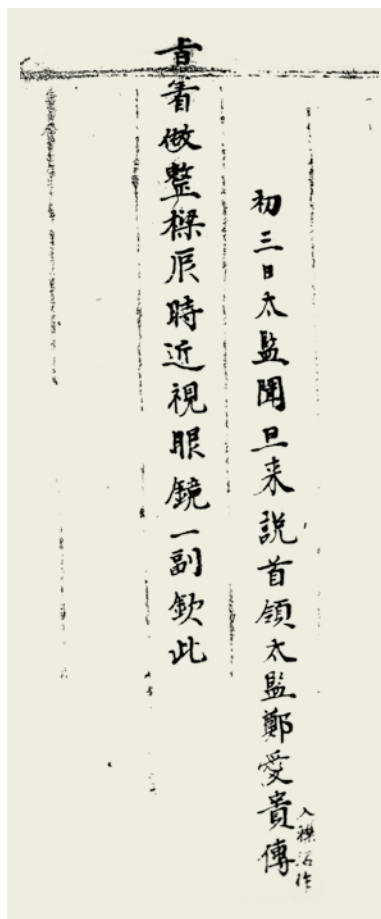 初三日太監聞旦来說首領太監鄭愛貴傳
旨着做整樑辰時近視眼鏡一副欽此